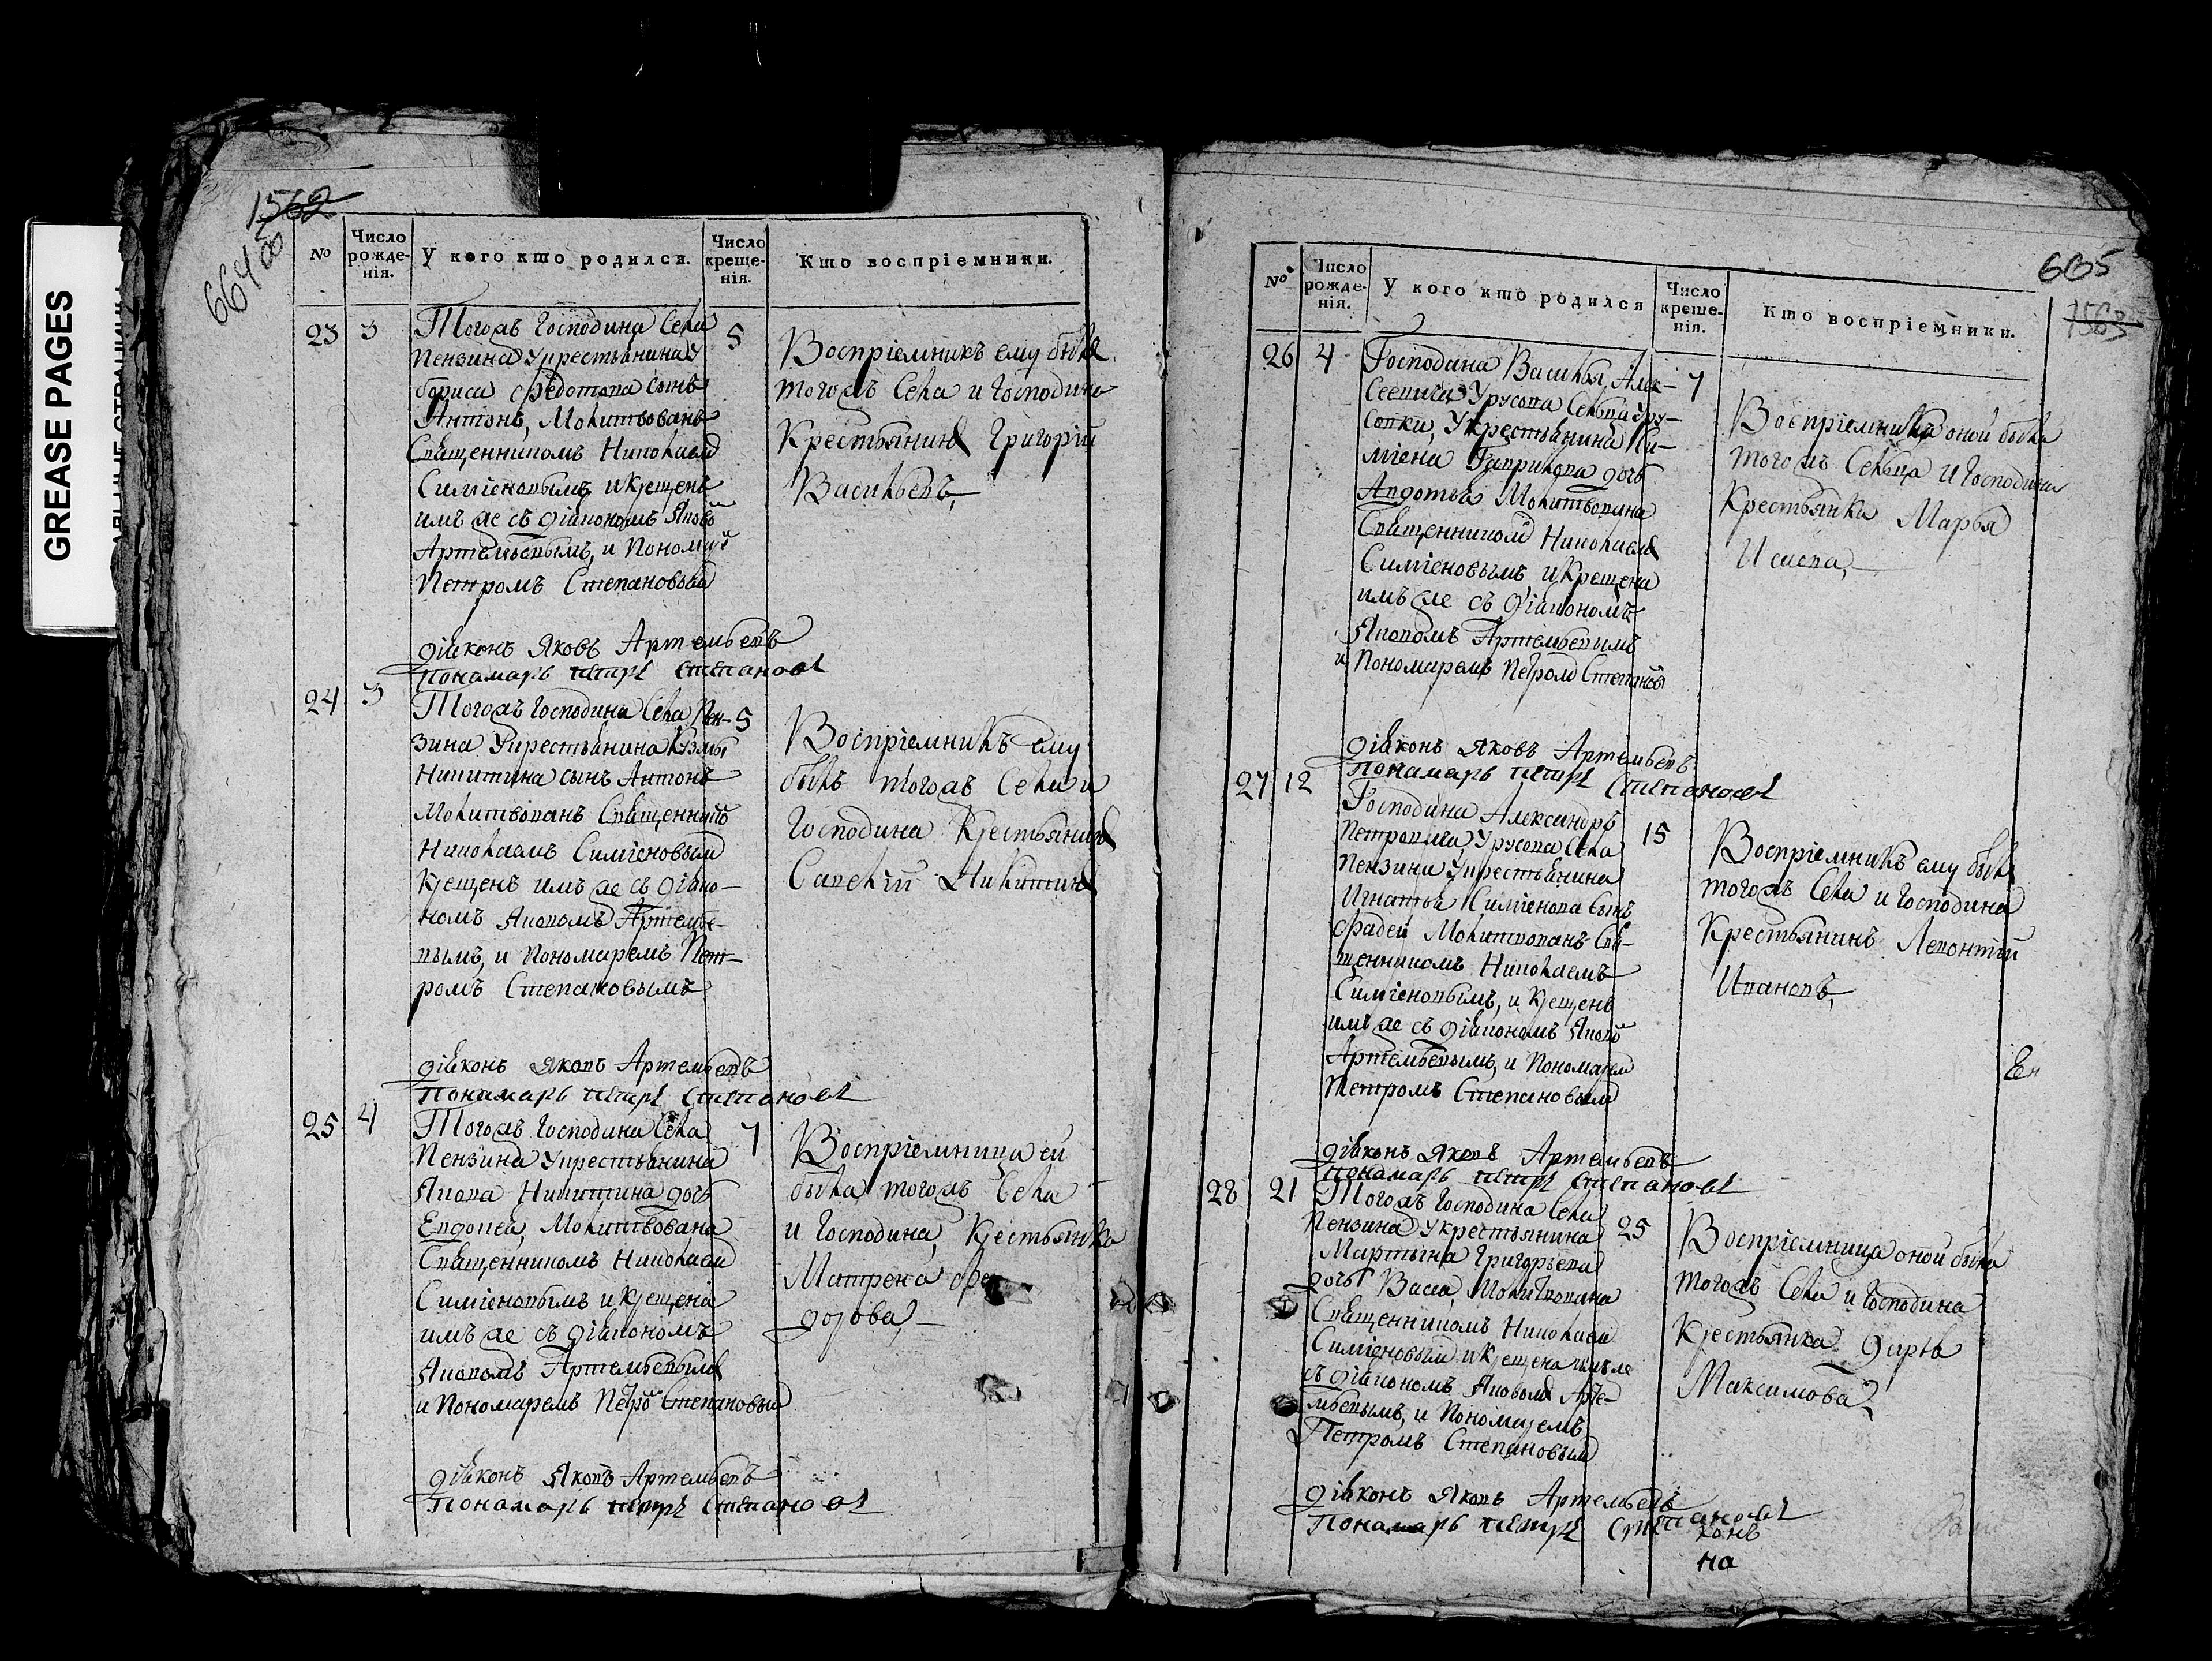 GREASE PAGES
1562
664 об
№
Число рожде-нія.
У кого кто родился.
Число креще-нія.
Кто воспріемники.
23
3
Тогожъ Господина Села
Пензина Укрестьянина
бориса Федотова сынъ
Антонъ, Молитвованъ
Священникомъ Николаем
Симіеновымъ и Крещенъ
имъ же съ діакономъ Яково
Артемьевымъ, и Пономаре
Петромъ Степановым
5
Воспріемникъ ему былъ
тогожъ Села и Господина
Крестьянинъ Григорій
Васильевъ,
діяконъ Яковъ Артемьевъ
понамарь петръ степановъ
24
3
Тогожъ Господина Села Пен-
зина Укрестьянина Кузмы
Никитина сынъ Антонъ
Молитвованъ Священнико
Николаемъ Симіеновым
Крещенъ имъ же съ діако-
номъ Яковомъ Артемье-
вымъ, и Пономаремъ Пет-
ромъ Степановымъ
5
Воспріемникъ ему
былъ тогожъ Села и
Господина Крестьянинъ
Савелій Никитинъ
діяконъ Яковъ Артемьевъ
понамарь петръ степановъ
25
4
Тогожъ Господина Села
Пензина Укрестьянина
Якова Никитина дочь
Евдокея, Молитвована
Священникомъ Николаем
Симіеновымъ и Крещена
имъ же съ діакономъ
Яковомъ Артемьевымъ
и Пономаремъ Петро Степановым
7
Воспріемница ей
была тогожъ Села
и Господина, Крестьянка
Матрена Фе
дорова,
діяконъ Яковъ Артемьевъ
понамарь петръ степановъ
665
1563
№
Число рожде-нія.
У кого кто родился
Число креще-нія.
Кто воспріемники.
26
4
Господина Василья, Алек-
сеевича Урусова Сельца Уру-
совки, Укрестьянина Си-
міена Гаврилова дочь
Авдотья Молитвована
Священником Николаем
Симіеновымъ и Крещена
имъ же съ діакономъ
Яковомъ Артемьевымъ
и Пономаремъ Петром Степановы
7
Воспріемника оной была
тогожъ Сельца и Господина
Крестьянка Марья
Исаева,
діяконъ Яковъ Артемьевъ
понамарь петръ степановъ
27
12
Господина Александръ
Петровича Урусова Села
Пензина Укрестьянина
Игнатья Симіенова сынъ
Фадей Молитвованъ Свя-
щенникомъ Николаемъ
Симіеновымъ, и Крещенъ
имъ же съ діакономъ Яково
Артемьевымъ, и Пономарем
Петромъ Степановым
15
Воспріемникъ ему былъ
тогожъ Села и Господина
Крестьянинъ Леонтій
Ивановъ,
діяконъ Яковъ Артемьевъ
понамарь петръ степановъ
28
21
Тогожъ Господина Села
Пензина Укрестьянина
Мартына Григорьева
дочь Васса, Молитвована
Священникомъ Николаем
Симіеновым и Крещена имъ же
съ діакономъ Яковомъ Арте-
мьевымъ, и Пономаремъ
Петромъ Степановым
25
Воспріемница оной была
тогожъ Села и Господина
Крестьянка Дарья
Максимова
діяконъ Яковъ Артемьевъ
понамарь петръ степановъ
конъ
на